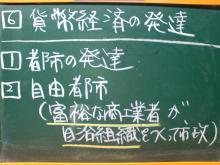 ⑥ 貨幣経済の発達
① 都市の発達
② 自由都市
(富裕な商工業者が
自治組織をつくって市政)